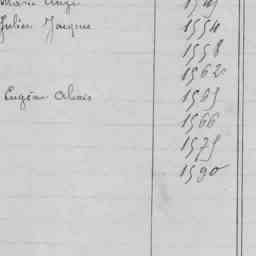 Marie Ange 1549
Julien Jacques 1554
1558
1562
Eugène Alexis 1565
1566
1575
1590